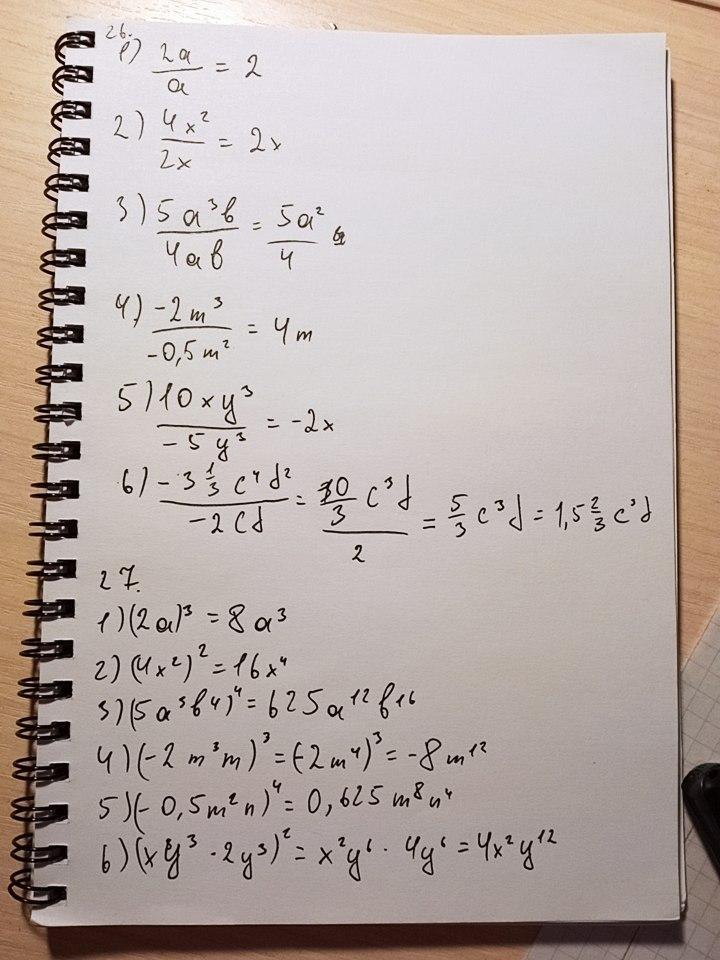 26.
1) 2a/a = 2
2) 4x²/2x = 2x
3) 5a³b/4ab = 5a²/4
4) -2m³/-0,5m² = 4m
5) 10xy³/-5y³ = -2x
6) -3 1/3 c⁴d²/-2cd = 10/3 c³d/2 = 5/3 c³d = 1,5 2/3 c³d
27.
1) (2a)³ = 8a³
2) (4x²)² = 16x⁴
3) (5a³b⁴)⁴ = 625a¹²b¹⁶
4) (-2m³m)³ = (-2m⁴)³ = -8m¹²
5) (-0,5m²n)⁴ = 0,625m⁸n⁴
6) (xy³ · 2y³)² = x²y⁶ · 4y⁶ = 4x²y¹²